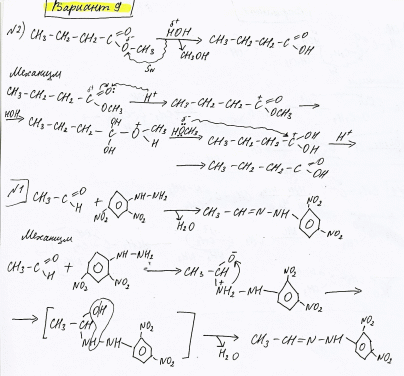 Вариант 9
N2) CH₃-CH₂-CH₂-C=O O-CH₃ HOH δ⁺ CH₃OH SN CH₃-CH₂-CH₂-C=O OH
Механизм
CH₃-CH₂-CH₂-C=O OCH₃ H⁺ CH₃-CH₂-CH₂-C=O OCH₃
HOH CH₃-CH₂-CH₂-C-O-CH₃ OH OH H HOCH₃ CH₃-CH₂-CH₂-C OH OH H⁺
CH₃-CH₂-CH₂-C=O OH
N1 CH₃-C=O H + NH-NH₂ NO₂ NO₂ H₂O CH₃-CH=N-NH NO₂ NO₂
Механизм
CH₃-C=O H + NH-NH₂ NO₂ NO₂ CH₃-CH O⁻ NH₂-NH NO₂ NO₂
[CH₃-CH OH NH-NH NO₂ NO₂] H₂O CH₃-CH=N-NH NO₂ NO₂